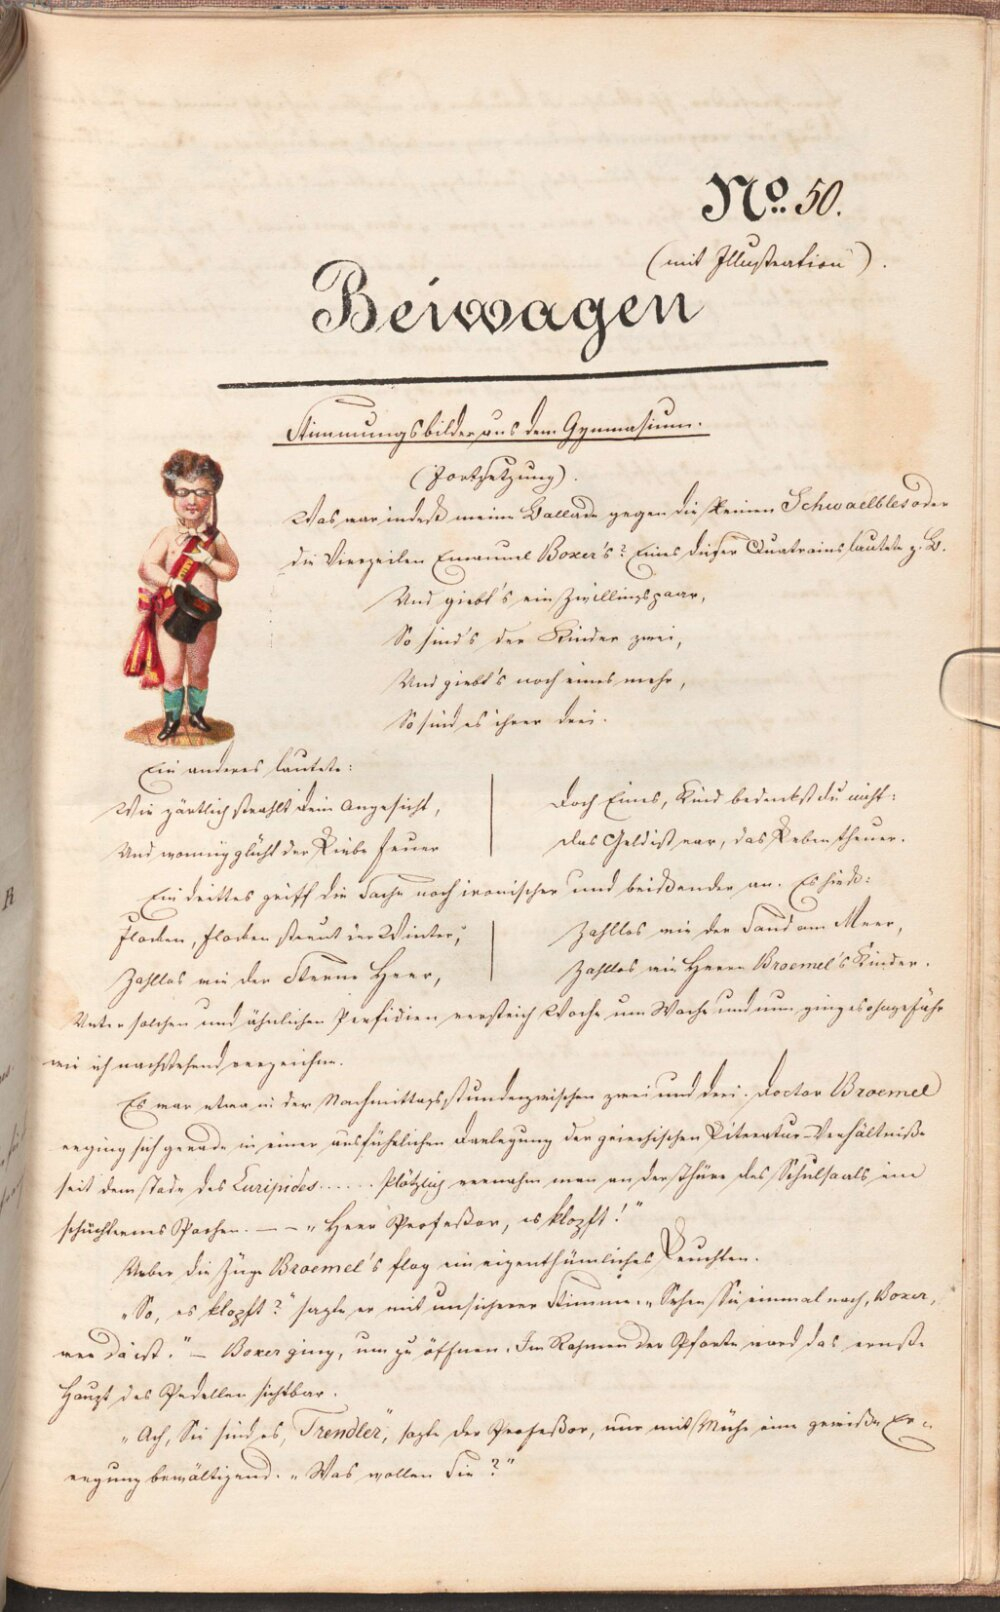 No. 50.
(mit Illustration).
Beiwagen
Stimmungsbilder aus dem Gymnasium.
(Fortsetzung).
Was war indeß meine Ballade gegen die kleinen Schwaelbles oder
die Vierzeilen Emanuel Boxer's? Eines dieser Quatrains lautete z. B.
Und giebt's ein Zwillingspaar,
So sind's der Kinder zwei,
Und giebt's noch eines mehr,
So sind es ihrer drei.
Ein anderes lautete:
Wie zärtlich strahlt dein Angesicht,
Und wonnig glüht der Liebe Feuer
Doch Eines, Kind bedenkst du nicht:
Das Geld ist rar, das Leben theuer.
Ein drittes griff die Sache noch ironischer und beißender an. Es hieß:
Flocken, Flocken streut der Winter,
Zahllos wie der Sterne Heer,
Zahllos wie der Sand am Meer,
Zahllos wie Herrn Broemel's Kinder.
Unter solchen und ähnlichen Perfidien verstrich Woche um Woche und nun ging es ohngefähr
wie ich nachstehend verzeichne.
Es war etwa in der Nachmittagsstunde zwischen zwei und drei. Doctor Broemel
erging sich gerade in einer ausführlichen Darlegung der griechischen Literatur-Verhältniße
seit dem Tode des Euripides...... Plötzlich vernahm man an der Thüre des Schulsaals ein
schüchternes Pochen. — – „Herr Profeßor, es klopft!"
Ueber die Züge Broemel's flog ein eigenthümliches Leuchten.
„So, es klopft?" sagte er mit unsicherer Stimme. „Sehen Sie einmal nach, Boxer,
wer da ist." – Boxer ging, um zu öffnen. Im Rahmen der Pforte ward das ernste
Haupt des Pedellen sichtbar.
„Ach, Sie sind es, Trendler", sagte der Profeßor, nur mit Mühe eine gewiße Er-
regung bewältigend. „Was wollen Sie?"